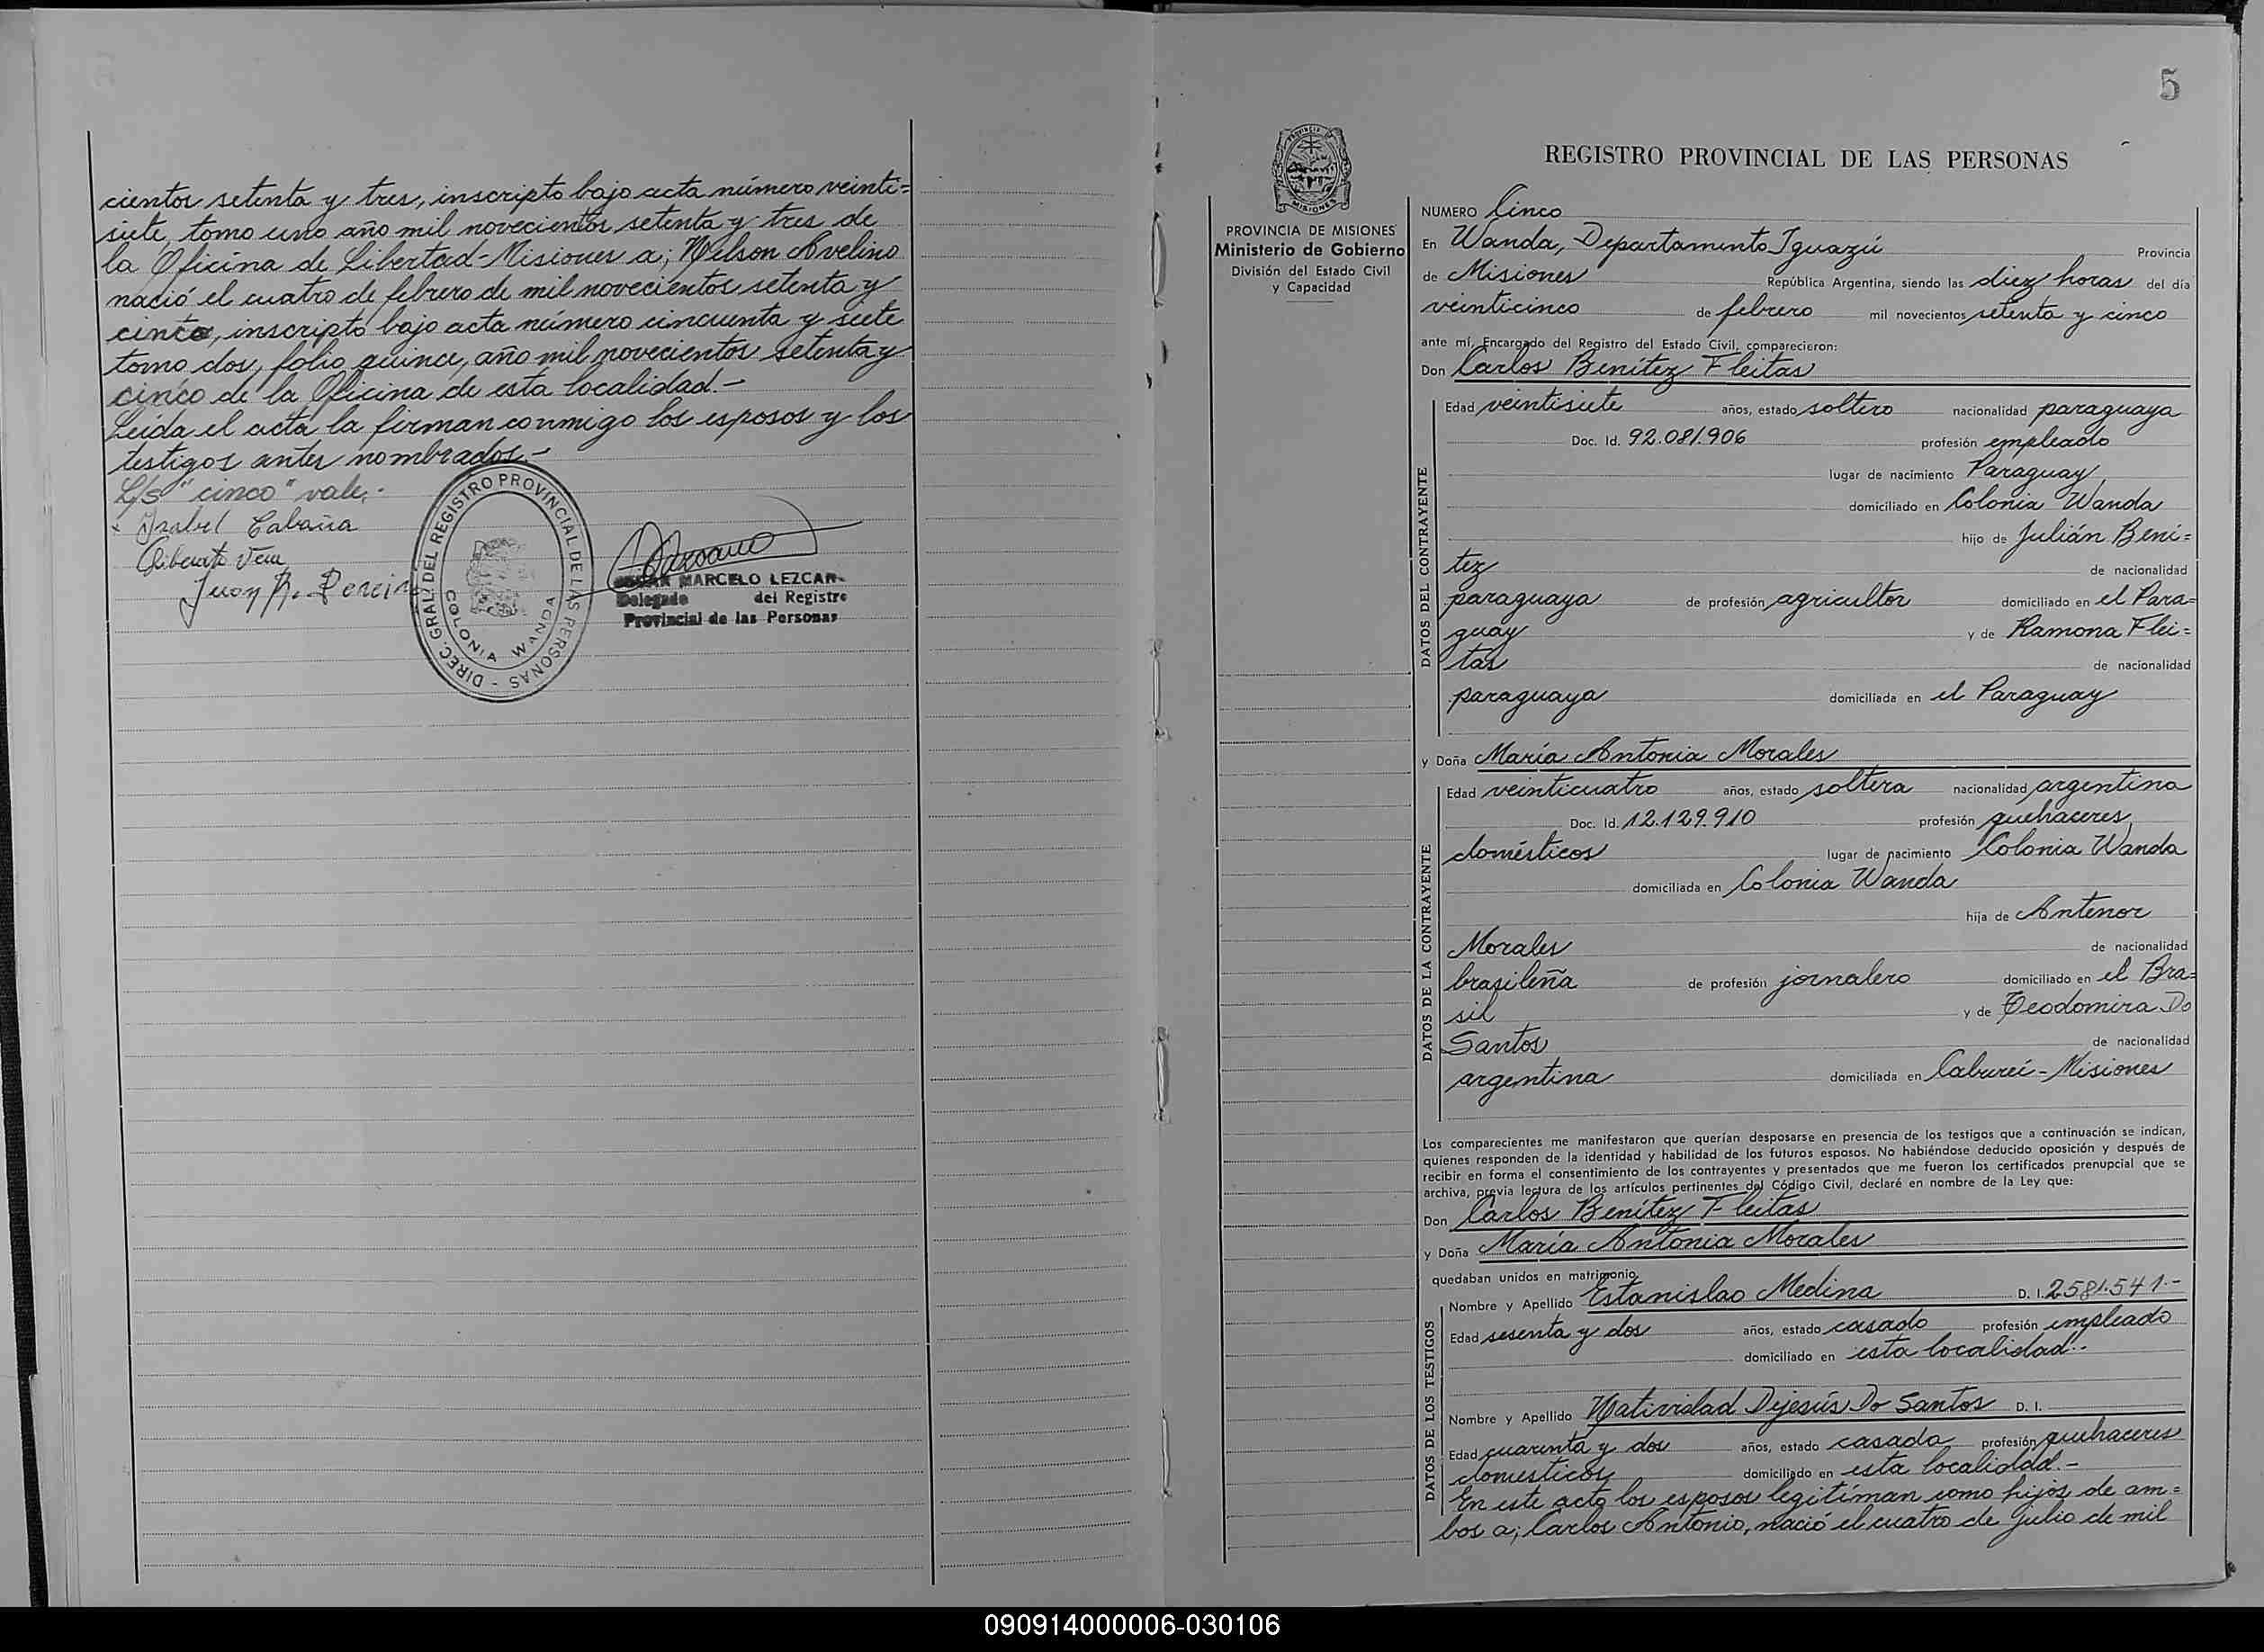 cientos setenta y tres, inscripto bajo acta número veinti=
siete, tomo uno año mil novecientos setenta y tres de
la Oficina de Libertad-Misiones a; Nelson Avelino
nació el cuatro de febrero de mil novecientos setenta y
cinco, inscripto bajo acta número cincuenta y siete
tomo dos, folio quince, año mil novecientos setenta y
cinco de la Oficina de esta localidad.-
Leída el acta la firman conmigo los esposos y los
testigos antes nombrados.-
L/s "cinco" vale.-
x Izabel Cabaña
Liberato Vera
Juan R. Pereira
DIREC. GRAL. DEL REGISTRO PROVINCIAL DE LAS PERSONAS -
COLONIA WANDA
MARCELO LEZCANO
Delegado del Registro
Provincial de las Personas
5
PROVINCIA DE MISIONES
PROVINCIA DE MISIONES
Ministerio de Gobierno
División del Estado Civil
y Capacidad
REGISTRO PROVINCIAL DE LAS PERSONAS
NUMERO Cinco
En Wanda, Departamento Iguazú Provincia
de Misiones República Argentina, siendo las diez horas del día
veinticinco de febrero mil novecientos setenta y cinco
ante mí, Encargado del Registro del Estado Civil, comparecieron:
Don Carlos Benítez Fleitas
DATOS DEL CONTRAYENTE
Edad veintisiete años, estado soltero nacionalidad paraguaya
Doc. Id. 92.081.906 profesión empleado
lugar de nacimiento Paraguay
domiciliado en Colonia Wanda
hijo de Julián Bení=
tez de nacionalidad
paraguaya de profesión agricultor domiciliado en el Para=
guay y de Ramona Flei=
tas de nacionalidad
paraguaya domiciliada en el Paraguay
y Doña María Antonia Morales
DATOS DE LA CONTRAYENTE
Edad veinticuatro años, estado soltera nacionalidad argentina
Doc. Id. 12.129.910 profesión quehaceres
domésticos lugar de nacimiento Colonia Wanda
domiciliada en Colonia Wanda
hija de Antenor
Morales de nacionalidad
brasileña de profesión jornalero domiciliado en el Bra=
sil y de Teodomira Do
Santos de nacionalidad
argentina domiciliada en Cabureí-Misiones
Los comparecientes me manifestaron que querían desposarse en presencia de los testigos que a continuación se indican,
quienes responden de la identidad y habilidad de los futuros esposos. No habiéndose deducido oposición y después de
recibir en forma el consentimiento de los contrayentes y presentados que me fueron los certificados prenupcial que se
archiva, previa lectura de los artículos pertinentes del Código Civil, declaré en nombre de la Ley que:
Don Carlos Benítez Fleitas
y Doña María Antonia Morales
quedaban unidos en matrimonio.
DATOS DE LOS TESTIGOS
Nombre y Apellido Estanislao Medina D. I. 2581.541.-
Edad sesenta y dos años, estado casado profesión empleado
domiciliado en esta localidad.-
Nombre y Apellido Natividad Dejesús Do Santos D. I.
Edad cuarenta y dos años, estado casada profesión quehaceres
domésticos domiciliado en esta localidad.-
En este acto los esposos legitiman como hijos de am=
bos a; Carlos Antonio, nació el cuatro de Julio de mil
090914000006-030106